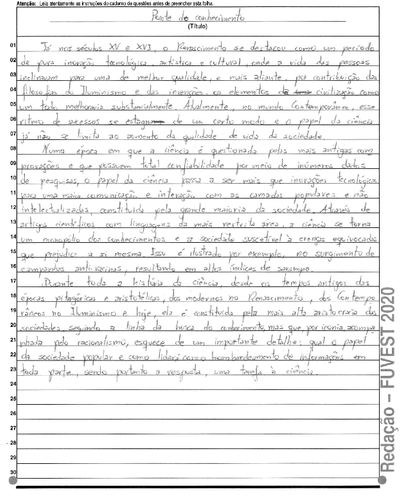 Atenção: Leia atentamente as instruções do caderno de questões antes de preencher esta folha.
Ponte do conhecimento
(Título)
01 Já nos séculos XV e XVI, o Renascimento se destacou como um período
02 de pura inovação tecnológica, artística e cultural, onde a vida das pessoas
03 inclinaram para uma de melhor qualidade, e mais adiante, por contribuição das
04 filosofias do Iluminismo e das invenções, os elementos da civilização como
05 um todo melhoraria substancialmente. Atualmente, no mundo Contemporâneo, esse
06 ritmo de sucessos se de um certo modo e o papel da ciência
07 já não se limita ao aumento da qualidade de vida da sociedade.
08 Numa época em que a ciência é questionada pelos mais antigos com
09 provações e que possuem total confiabilidade por meio de inúmeros dados
10 de pesquisas, o papel da ciência passa a ser mais que inovações tecnológicas,
11 para uma maior comunicação e interação com as camadas populares e não
12 intelectualizadas, constituída pela grande maioria da sociedade. Através de
13 artigos científicos com linguagem da mais restrita área, a ciência se torna
14 um monopólio dos conhecimentos e a sociedade suscetível à crenças equivocadas
15 que prejudica a si mesma. Isso é ilustrado por exemplo, no surgimento de
16 campanhas anti-vacinas, resultando em altos índices de sarampo.
17 Durante toda a história da ciência, desde os tempos antigos das
18 épocas pitagóricas e aristotélicas, dos modernos no Renascimento, dos Contempo-
19 râneos no Iluminismo e hoje, ela é constituída pela mais alta aristocracia das
20 sociedades, seguindo a linha da busca do conhecimento, mas que por ironia, acompa-
21 nhada pelo racionalismo, esquece de um importante detalhe: qual o papel
22 da sociedade popular e como lidará com o bombardeamento de informações em
23 toda parte, sendo portanto a resposta, uma tarefa à ciência.
24
25
26
27
28
29
30
Redação – FUVEST 2020